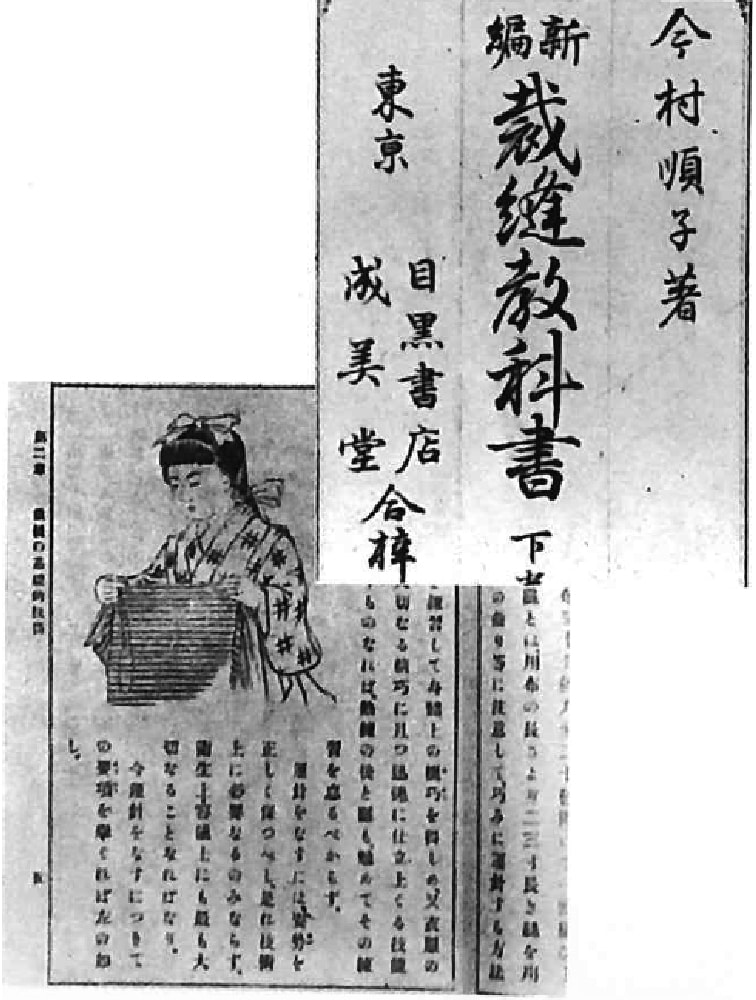 今村順子著
新編
裁縫教科書
下
東京
目黒書店
成美堂
合梓
とは用布の長さより二三寸長き絲を用
の曲り等に注意して巧みに運針する方法
練習して身體上の技巧を得しめ、又衣服の
切なる技巧に且つ迅速に仕立上ぐる技能
ものなれば、熟練の後と雖も、勉めてその練
習を怠るべからず。
運針をなすには、姿勢を
正しく保つべし、是れ技術
上に必要なるのみならず、
衛生上容儀上にも最も大
切なることなればなり。
今運針をなすにつきて
の要項を擧ぐれば左の如
し。
第二章 裁縫の基礎的技術